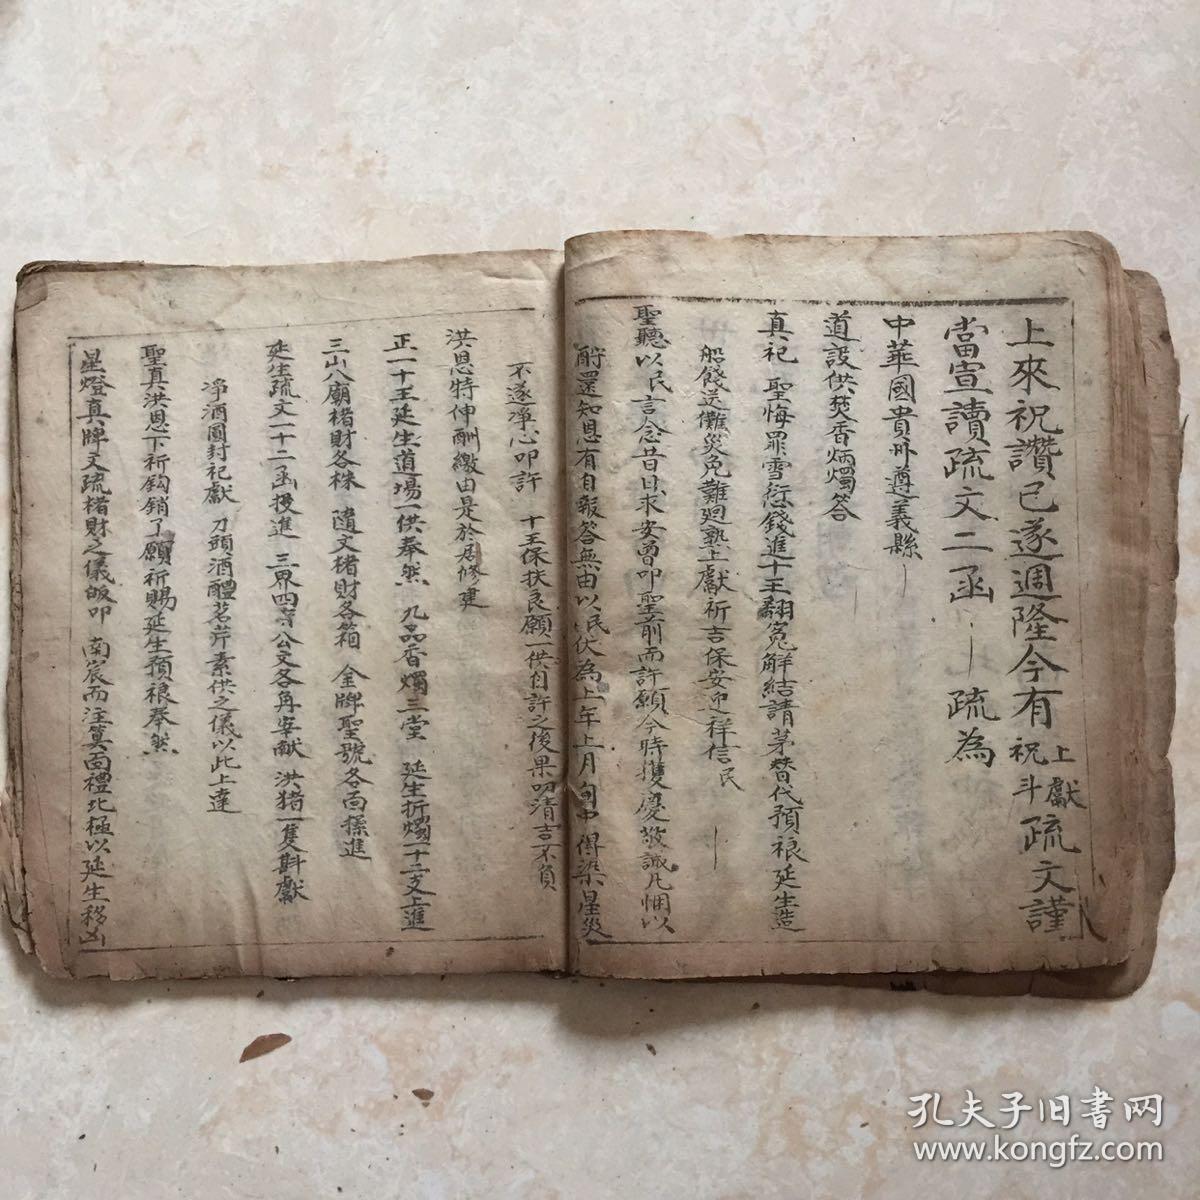 上來祝讚已遂週隆今有上獻祝斗疏文謹
當宣讀疏文二函 疏為
中華國貴州遵義縣
道設供焚香炳燭答
真祀 聖悔罪雪愆錢進十王翻冤解結請茅替代預禳延生造
船餞送儺災免難廻熟上獻祈吉保安迎祥信民
聖聽以民言念昔日求安曾叩聖前而許願今時獲慶敬誠凡悃以
酧還知恩有自報答無由以民伏為上年上月旬中 得染星災
不遂凈心叩許 十王保扶良願一供自許之後果叨清吉不負
洪恩特伸酬繳由是於居修建
正一十王延生道場一供奉然 九品香燭三堂 延生折燭一十二支上進
三山八廟楮財各株 隨文楮財各箱 金牌聖號各面操進
延生疏文一十二函投進 三界四等公文各角宰献 洪猪一隻斟獻
凈酒圓封祀獻 刀頭酒醴茗芹素供之儀以此上達
聖真洪恩下祈鈎銷了願祈賜延生預禳奉然
星燈真牌文疏楮財之儀皈叩 南宸而注筭面禮北極以延生移凶
孔夫子旧書网
www.kongfz.com